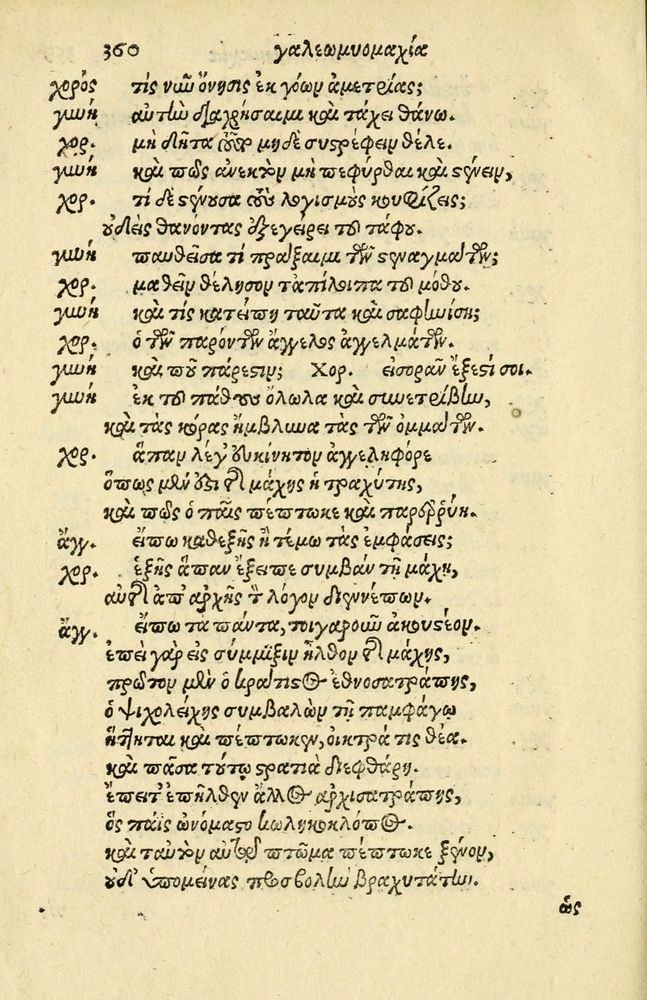 360 γαλεωμυομαχία
χορός τίς νῦν ὄνησις ἐκ γόων ἀμετρίας;
γυνή αὐτὴν διαχρήσαιμι καὶ τάχει θάνω.
χορ. μὴ δῆτα τοῦτο μηδὲ συστρέφειν θέλε.
γυνή καὶ πῶς ἀνεκτὸν μὴ πεφύρθαι καὶ στένειν,
χορ. τί δὲ στένουσα τοὺς λογισμοὺς κουφίζεις;
οὐδεὶς θανόντας ἐξεγείρει τοῦ τάφου.
γυνή παυθεῖσα τί πράξαιμι τῶν στεναγμάτων;
χορ. μαθεῖν θέλησον τἀπίλοιπα τοῦ μόθου.
γυνή καὶ τίς κατείπῃ ταῦτα καὶ σαφηνίσῃ;
χορ. ὁ τῶν παρόντων ἄγγελος ἀγγελμάτων.
γυνή καὶ ποῦ πάρεστιν; Χορ. εἰσορᾶν ἔξεστί σοι.
γυνή ἐκ τοῦ πάθους ὄλωλα καὶ συνετρίβην,
καὶ τὰς κόρας ἤμβλυνα τὰς τῶν ὀμμάτων.
χορ. ἅπαν λέγ' οὑκίνητον ἀγγεληφόρε
ὅπως μὲν ἐστι τῆς μάχης ἡ τραχύτης,
καὶ πῶς ὁ παῖς πέπτωκε καὶ παρερρύη.
ἄγγ. εἴπω καθεξῆς ἢ τέμω τὰς ἐμφάσεις;
χορ. ἑξῆς ἅπαν ἔξειπε συμβὰν τῇ μάχῃ,
αὐτῆς ἀπ' ἀρχῆς τὸν λόγον διεννέπων.
ἄγγ. εἴπω τὰ πάντα, τοιγαροῦν ἀκουστέον.
ἐπεὶ γὰρ εἰς σύμμιξιν ἦλθον τῆς μάχης,
πρῶτον μὲν ὁ κράτιστος ἐθνοσατράπης,
ὁ ψιχολείχης συμβαλὼν τῇ παμφάγῳ
ἥττηται καὶ πέπτωκεν, οἰκτρά τις θέα.
καὶ πᾶσα τούτῳ στρατιὰ διεφθάρη.
ἔπειτ' ἐπῆλθεν ἄλλος ἀρχισατράπης,
ὃς παῖς ὠνόμαστο κωληκοκλόπος.
καὶ ταυτὸν αὐτῷ πτῶμα πέπτωκε ξένον,
οὐδ' ὑπομείνας προσβολὴν βραχυτάτην.
ὡς